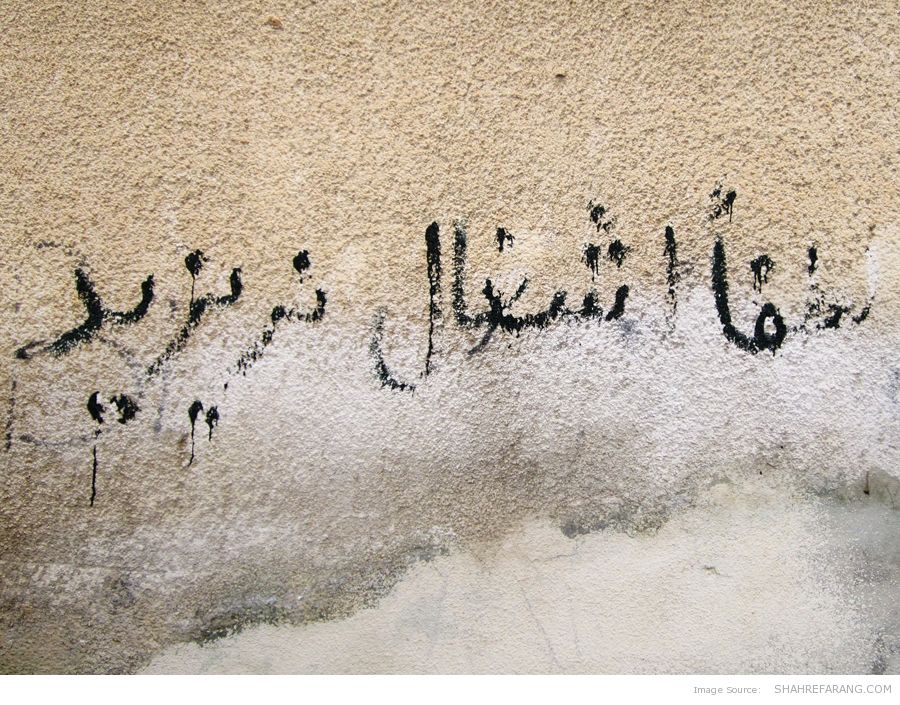 لطفاً اشغال نریزید
Image Source: SHAHREFARANG.COM